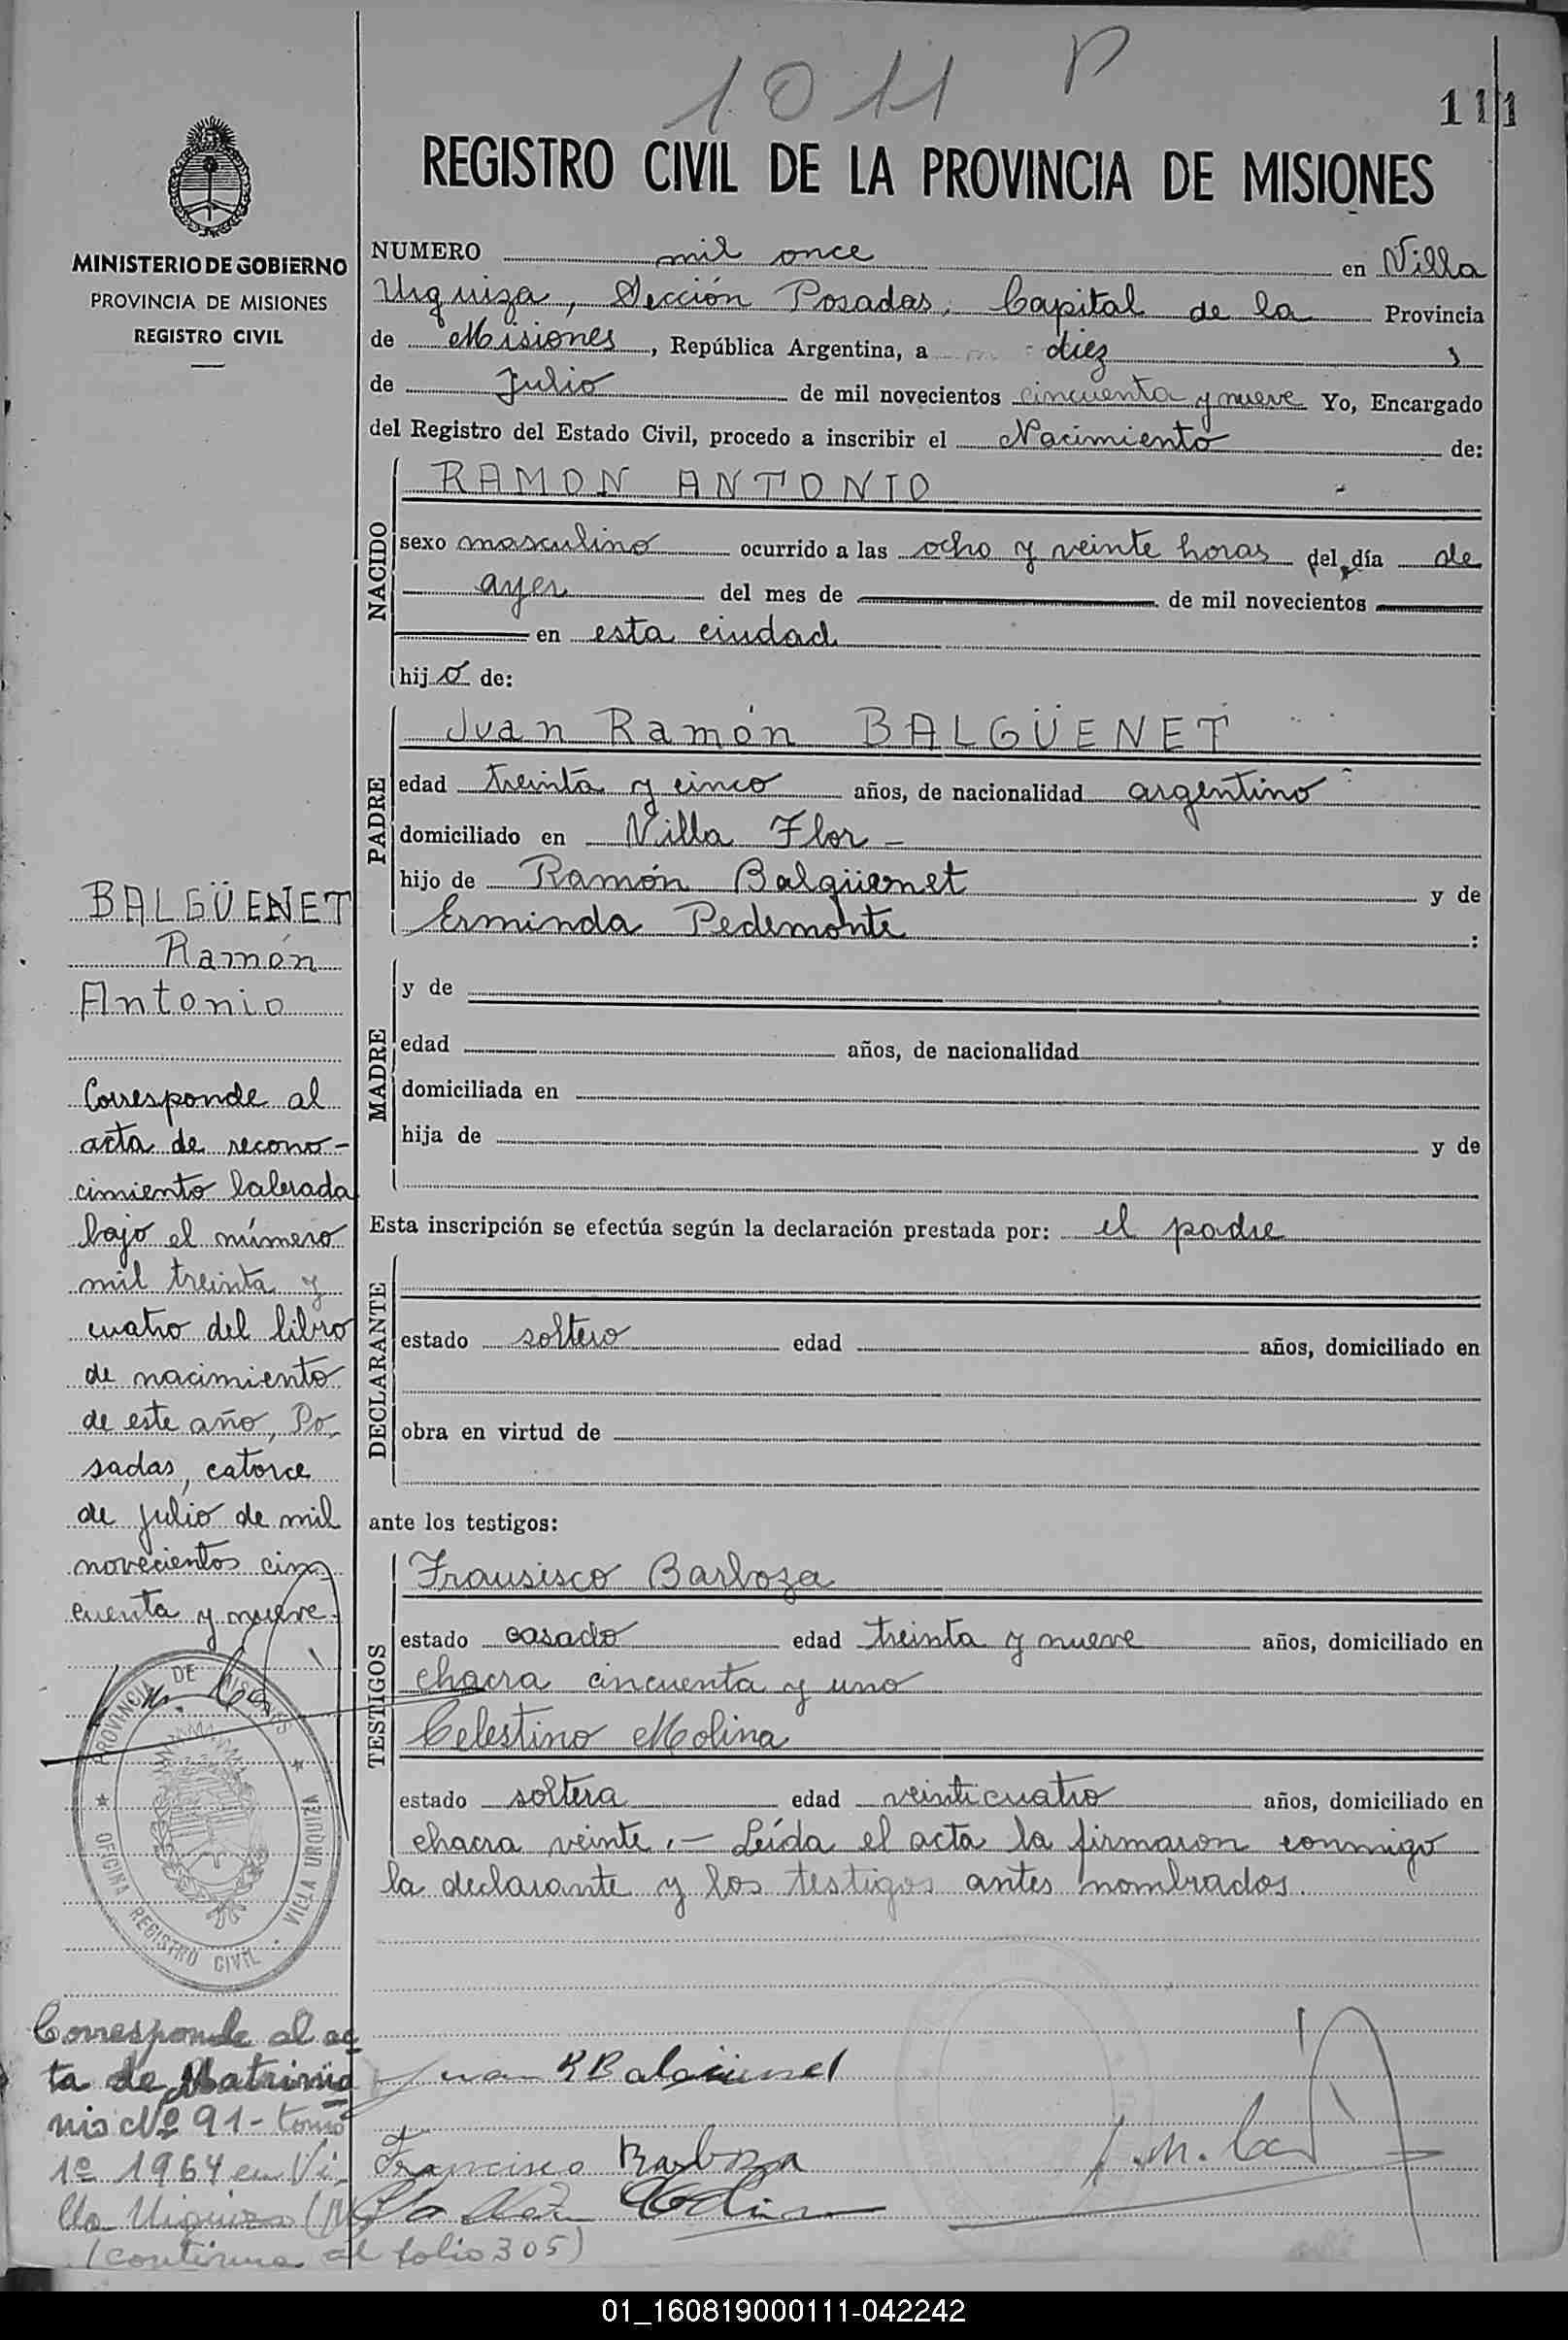 1011 P
111
REGISTRO CIVIL DE LA PROVINCIA DE MISIONES
MINISTERIO DE GOBIERNO
PROVINCIA DE MISIONES
REGISTRO CIVIL
NUMERO mil once en Villa
Urquiza, Sección Posadas, Capital de la Provincia
de Misiones, República Argentina, a diez
de Julio de mil novecientos cincuenta y nueve Yo, Encargado
del Registro del Estado Civil, procedo a inscribir el Nacimiento de:
NACIDO
RAMON ANTONIO
sexo masculino ocurrido a las ocho y veinte horas del día de
ayer del mes de de mil novecientos
en esta ciudad
hijo de:
PADRE
Juan Ramón BALGÜENET
edad treinta y cinco años, de nacionalidad argentino
domiciliado en Villa Flor -
hijo de Ramón Balgüenet y de
Erminda Pedemonte :
MADRE
y de
edad años, de nacionalidad
domiciliada en
hija de y de
Esta inscripción se efectúa según la declaración prestada por: el padre
DECLARANTE
estado soltero edad años, domiciliado en
obra en virtud de
ante los testigos:
TESTIGOS
Fransisco Barboza
estado casado edad treinta y nueve años, domiciliado en
chacra cincuenta y uno
Celestino Molina
estado soltera edad veinticuatro años, domiciliado en
chacra veinte.- Leída el acta la firmaron conmigo
la declarante y los testigos antes nombrados.
Juan R Balgüenet
Francisco Barboza
BALGÜENET
Ramón
Antonio
Corresponde al
acta de recono-
cimiento labrada
bajo el número
mil treinta y
cuatro del libro
de nacimiento
de este año, Po-
sadas, catorce
de julio de mil
novecientos cin-
cuenta y nueve.
PROVINCIA DE MISIONES
OFICINA REGISTRO CIVIL · VILLA URQUIZA
Corresponde al ac
ta de Matrimo
nio Nº 91 - tomo
1º 1964 en Vi-
lla Urquiza
(continua al folio 305)
01_160819000111-042242